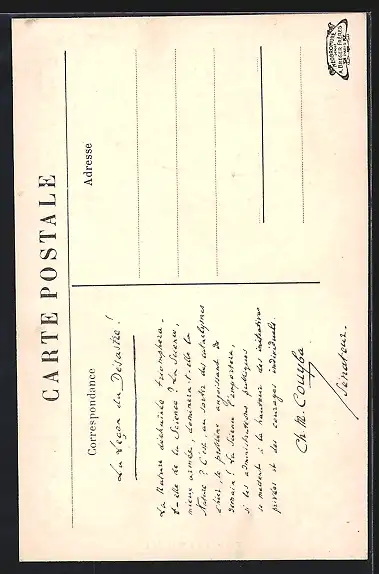 CARTE POSTALE
Correspondance
Adresse
La Leçon du Désastre !
La Nature déchaînée triomphera-
t-elle de la Science ? La Science,
mieux armée, dominera-t-elle la
Nature ? C'est, au sortir des cataclymes
d'hier, le problème angoissant de
demain ! La Science l'emportera,
si les administrations publiques
se mettent à la hauteur des initiatives
privées et des courages individuels.
Ch. M. Couyba
Sénateur.
A. BREGER FRÈRES